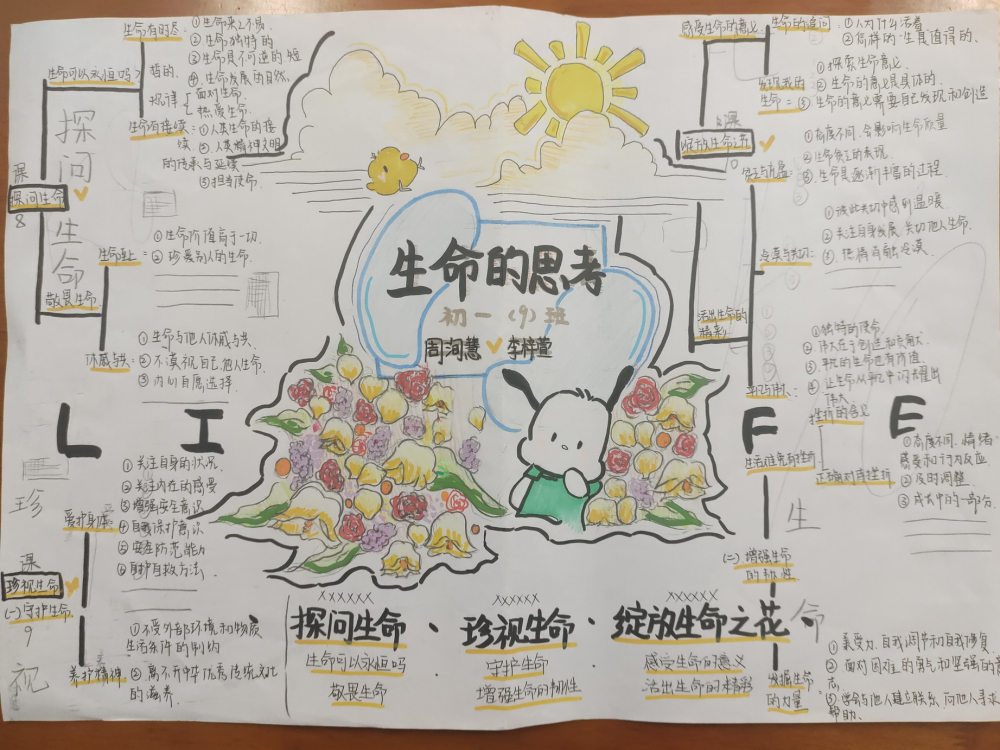 生命有时尽:
①生命来之不易.
②生命独特的
③生命是不可逆的 短
暂的.
④生命发展的自然
规律
面对生命.
热爱生命.
生命可以永恒吗?
生命有接续:
①人类生命的接
续 ②人类精神文明
的传承与延续
③担当使命.
探问生命
课
探问生命
8
生命至上
=
①生命价值高于一切.
②珍爱别人的生命.
敬畏生命.
休戚与共:
①生命与他人休戚与共.
②不漠视自己,他人生命.
③内心自愿选择.
L I F E
生命的思考
初一(9)班
周洵慧 李梓萱
感受生命的意义
生命的追问
①人为什么活着
②怎样的一生是值得的.
发现我的
生命
=
①探索生命意义.
②生命的意义是具体的.
③生命的意义需要自己发现和创造
课
绽放生命之花
10
贫乏与充盈:
①态度不同,会影响生命质量
②生命贫乏的表现.
③生命是逐渐丰富的过程.
冷漠与关切:
①彼此关切中感到温暖
②关注自身发展,关切他人生命.
③热情消融冷漠.
活出生命的
精彩
平凡与伟大:
①独特的使命.
②伟大在于创造和贡献大
③平凡的生命也有价值
④让生命从平凡中闪耀出
伟大.
珍视
爱护身体:
①关注自身的状况.
②关注内在的感受
③增强安全意识
④自我保护意识
⑤安全防范能力
⑥自护自救方法.
课
珍视生命
(一)守护生命.
9
养护精神:
①不受外部环境和物质
生活条件的制约
②离不开中华优秀传统文化
的滋养.
生活难免有挫折
挫折的含义
正确对待挫折
①态度不同,情绪
感受和行为反应
②及时调整.
③成长中的一部分.
生命
(二)增强生命
的韧性
发掘生命
的力量
①承受力.自我调节和自我修复.
②面对困难的勇气和坚强的意
志
③学会与他人建立联系,向他人寻求
帮助.
XXXXX XXXXX XXXXXX
探问生命 · 珍视生命 · 绽放生命之花
生命可以永恒吗 守护生命 感受生命的意义
敬畏生命 增强生命的韧性 活出生命的精彩